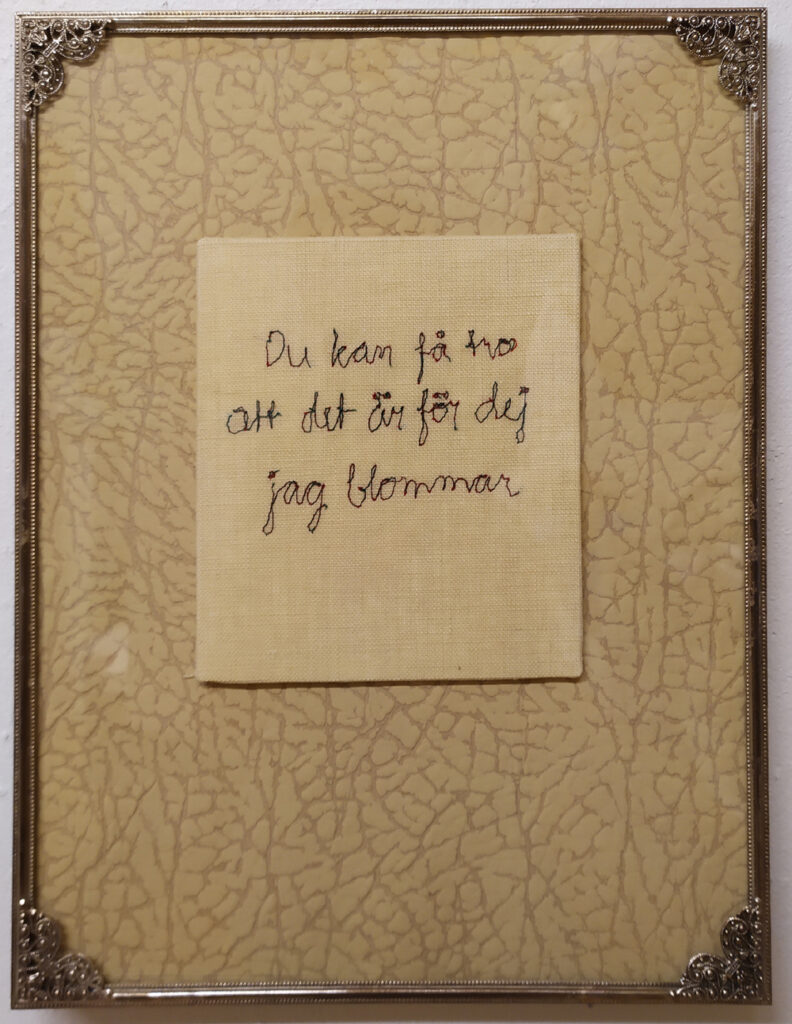 Du kan få tro
att det är för dej
jag blommar